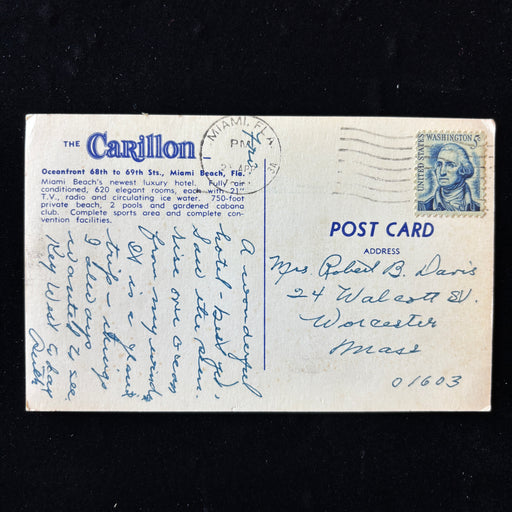 THE CaRillon
Oceanfront 68th to 69th Sts., Miami Beach, Fla.
Miami Beach's newest luxury hotel. Fully air
conditioned, 620 elegant rooms, each with 21"
T.V., radio and circulating ice water. 750-foot
private beach, 2 pools and gardened cabana
club. Complete sports area and complete con-
vention facilities.
MIAMI, FLA
PM
APR
UNITED STATES
WASHINGTON 5c
POST CARD
ADDRESS
Mrs. Robert B. Davis
24 Walcott St.
Worcester
Mass
01603
A wonderful
hotel - bed
Saw the
ocean
from my window
It is a
trip - things
I always
wanted to see,
Key West
Ruth